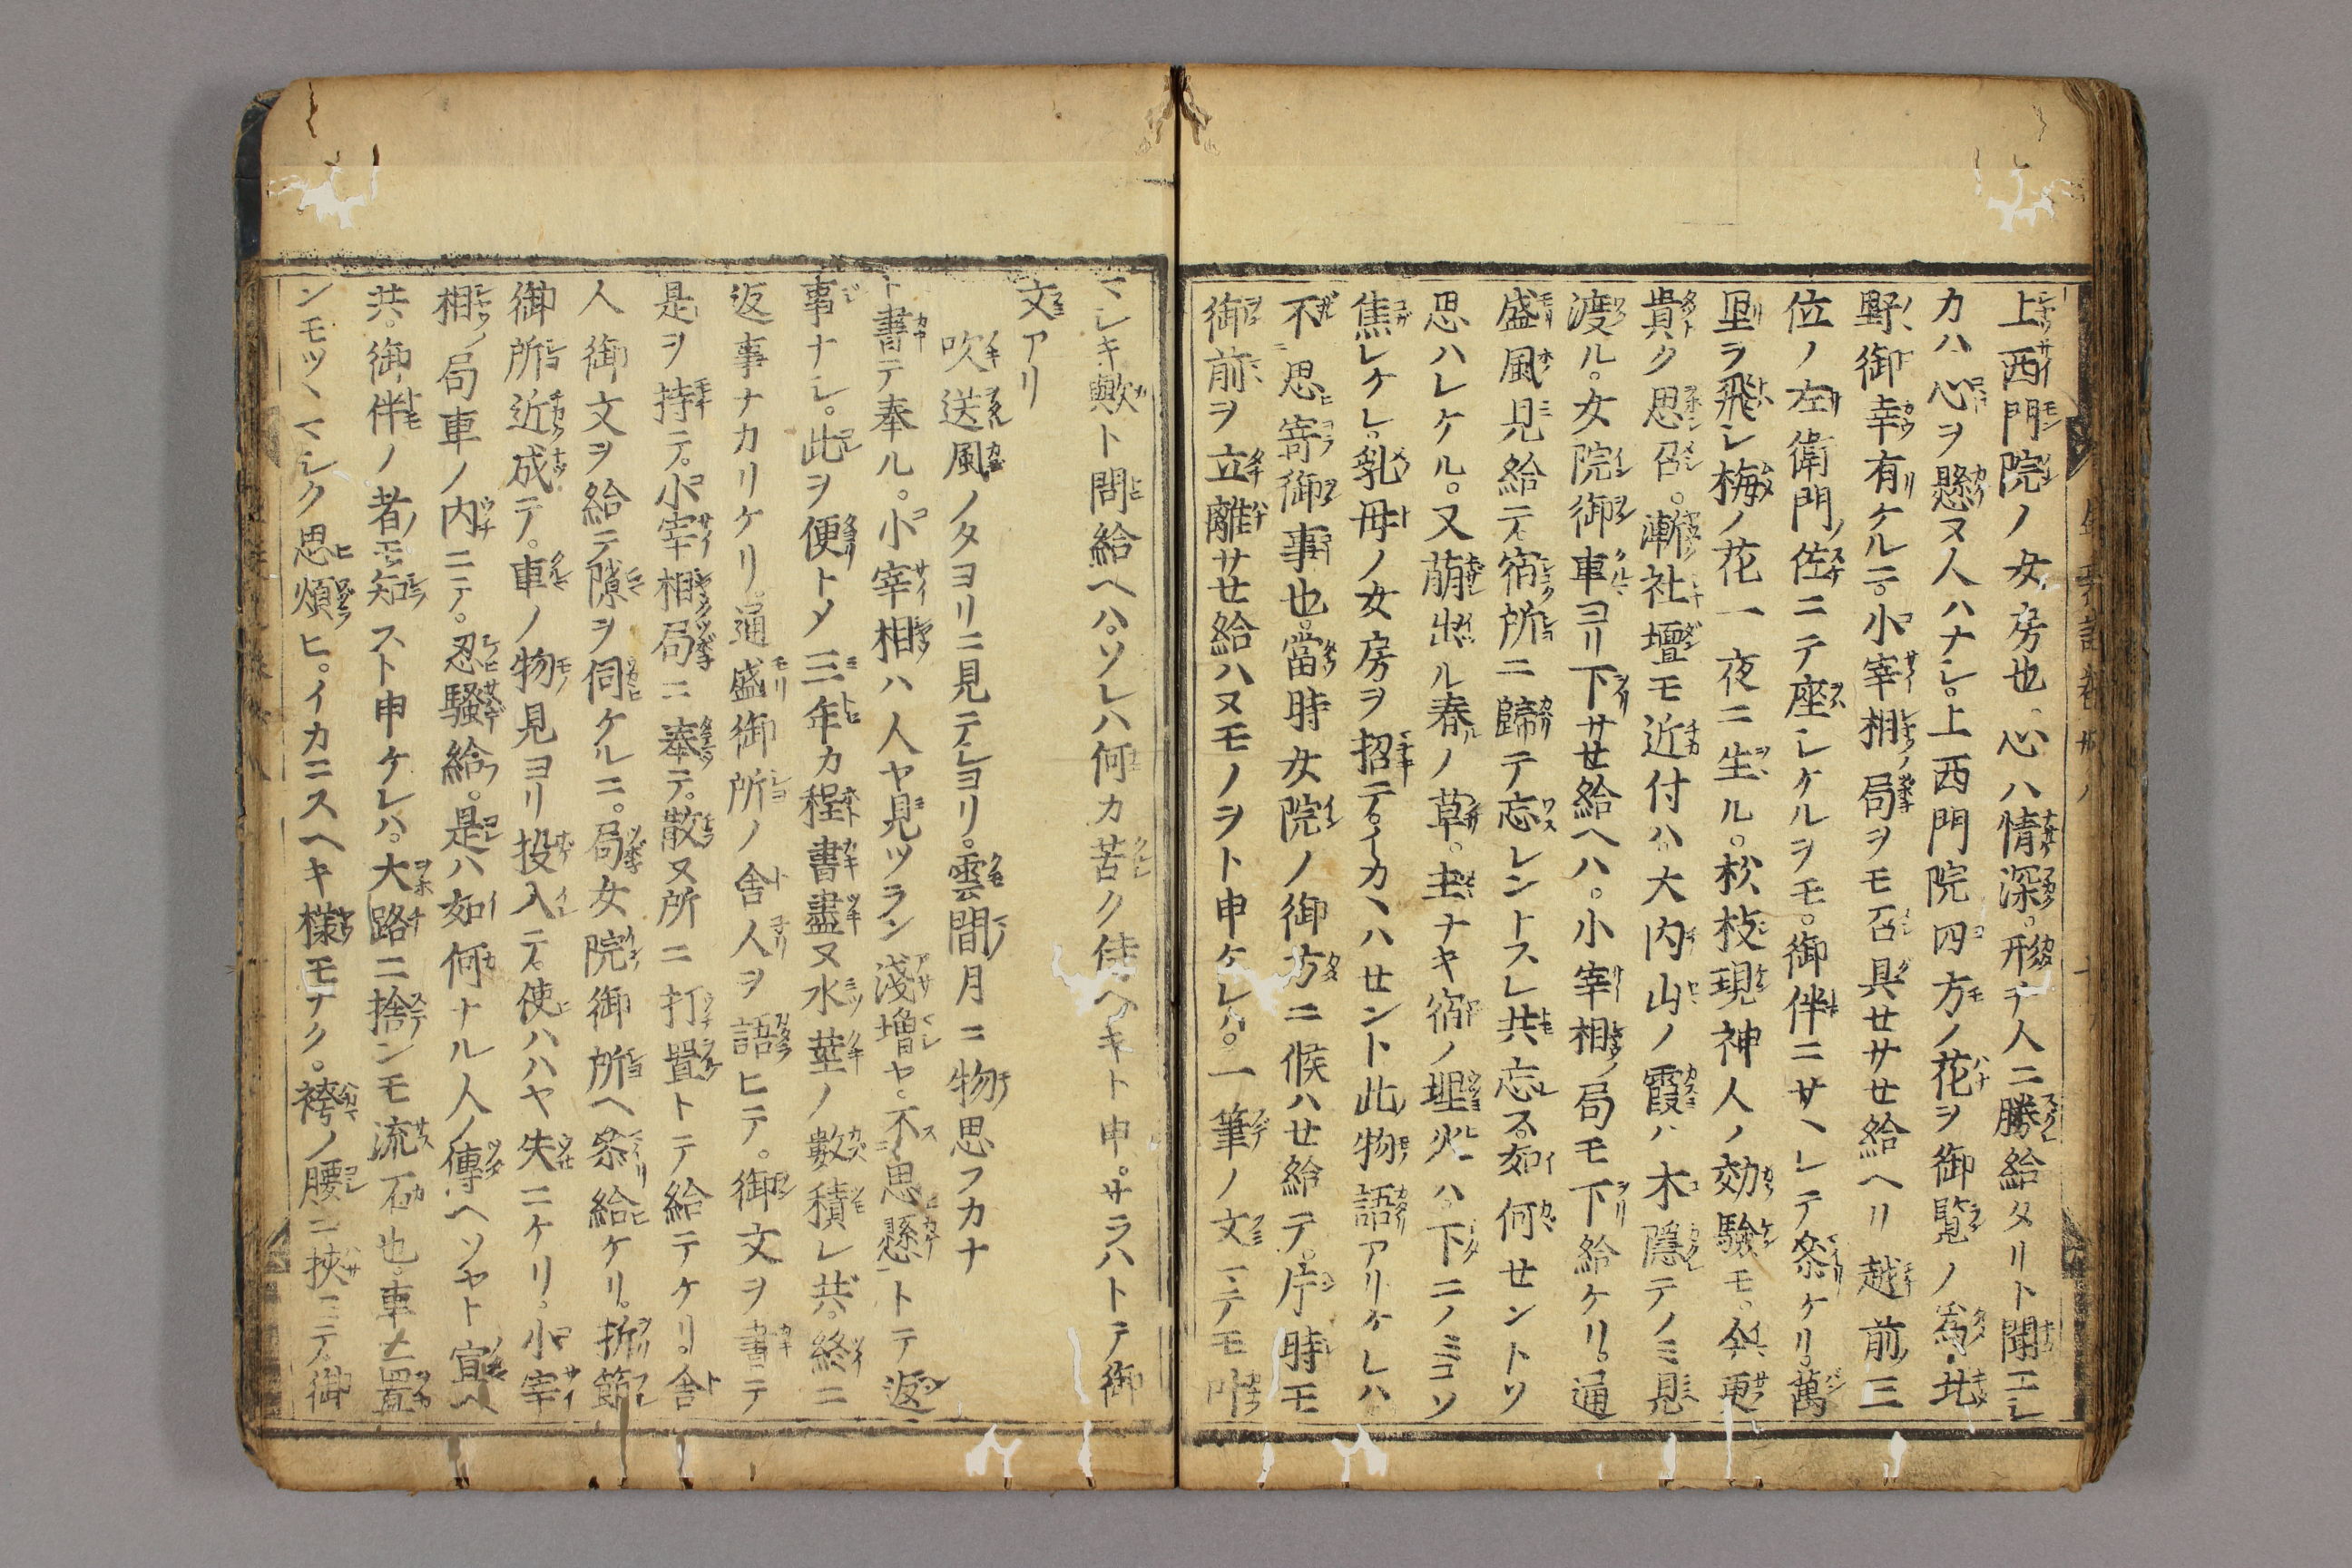 上西門院ノ女房也心ハ情深。形チ人ニ勝給タリト聞エシ
カハ心ヲ懸ヌ人ハナシ。上西門院四方ノ花ヲ御覧ノ為ニ北
野御幸有ケルニ。小宰相ノ局ヲモ召具セサセ給ヘリ越前三
位ノ左衛門佐ニテ座シケルヲモ。御伴ニサヽレテ参ケリ。萬
里ヲ飛シ梅ノ花一夜ニ生ル。松枝現神人ノ効験モ。今更
貴ク思召。漸社壇モ近付ハ。大内山ノ霞ハ木隠テノミ見
渡ル。女院御車ヨリ下サセ給ヘハ。小宰相ノ局モ下給ケリ。通
盛風見給テ。宿所ニ歸テ忘レントスレ共忘ス。如何セントソ
思ハレケル。又萠出ル春ノ草。主ナキ宿ノ埋火ハ下ニノミコソ
焦レケレ。乳母ノ女房ヲ招テ。イカヽハセント此物語アリケレハ
不思寄御事也。當時女院ノ御方ニ候ハセ給テ。片時モ
御前ヲ立離サセ給ハヌモノヲト申ケレハ。一筆ノ文ミテモ叶
マシキ歟ト問給ヘハ。ソレハ何カ苦ク侍ヘキト申。サラハトテ御
文アリ
吹送風ノタヨリニ見テシヨリ。雲間月ニ物思フカナ
ト書テ奉ル。小宰相ハ人ヤ見ツラン淺増ヤ。不思懸トテ返
事ナシ。此ヲ便トメ三年カ程書盡ヌ水莖ノ數積レ共。終ニ
返事ナカリケリ。通盛御所ノ舎人ヲ語ヒテ。御文ヲ書テ
是ヲ持テ。小宰相局ニ奉テ。散ヌ所ニ打置トテ給テケリ。舎
人御文ヲ給テ隙ヲ伺ケルニ。局女院御所ヘ参給ケリ。折節
御所近成テ。車ノ物見ヨリ投入テ。使ハハヤ失ニケリ。小宰
相ノ局車ノ内ニテ。忍騒給。是ハ如何ナル人ノ傳ヘソヤト宣ヘ
共。御伴ノ者モ知スト申ケレハ。大路ニ捨ンモ流石也。車ニ置
ンモツヽマシク思煩ヒ。イカニスヘキ様モナク。袴ノ腰ニ挾ミテ。御